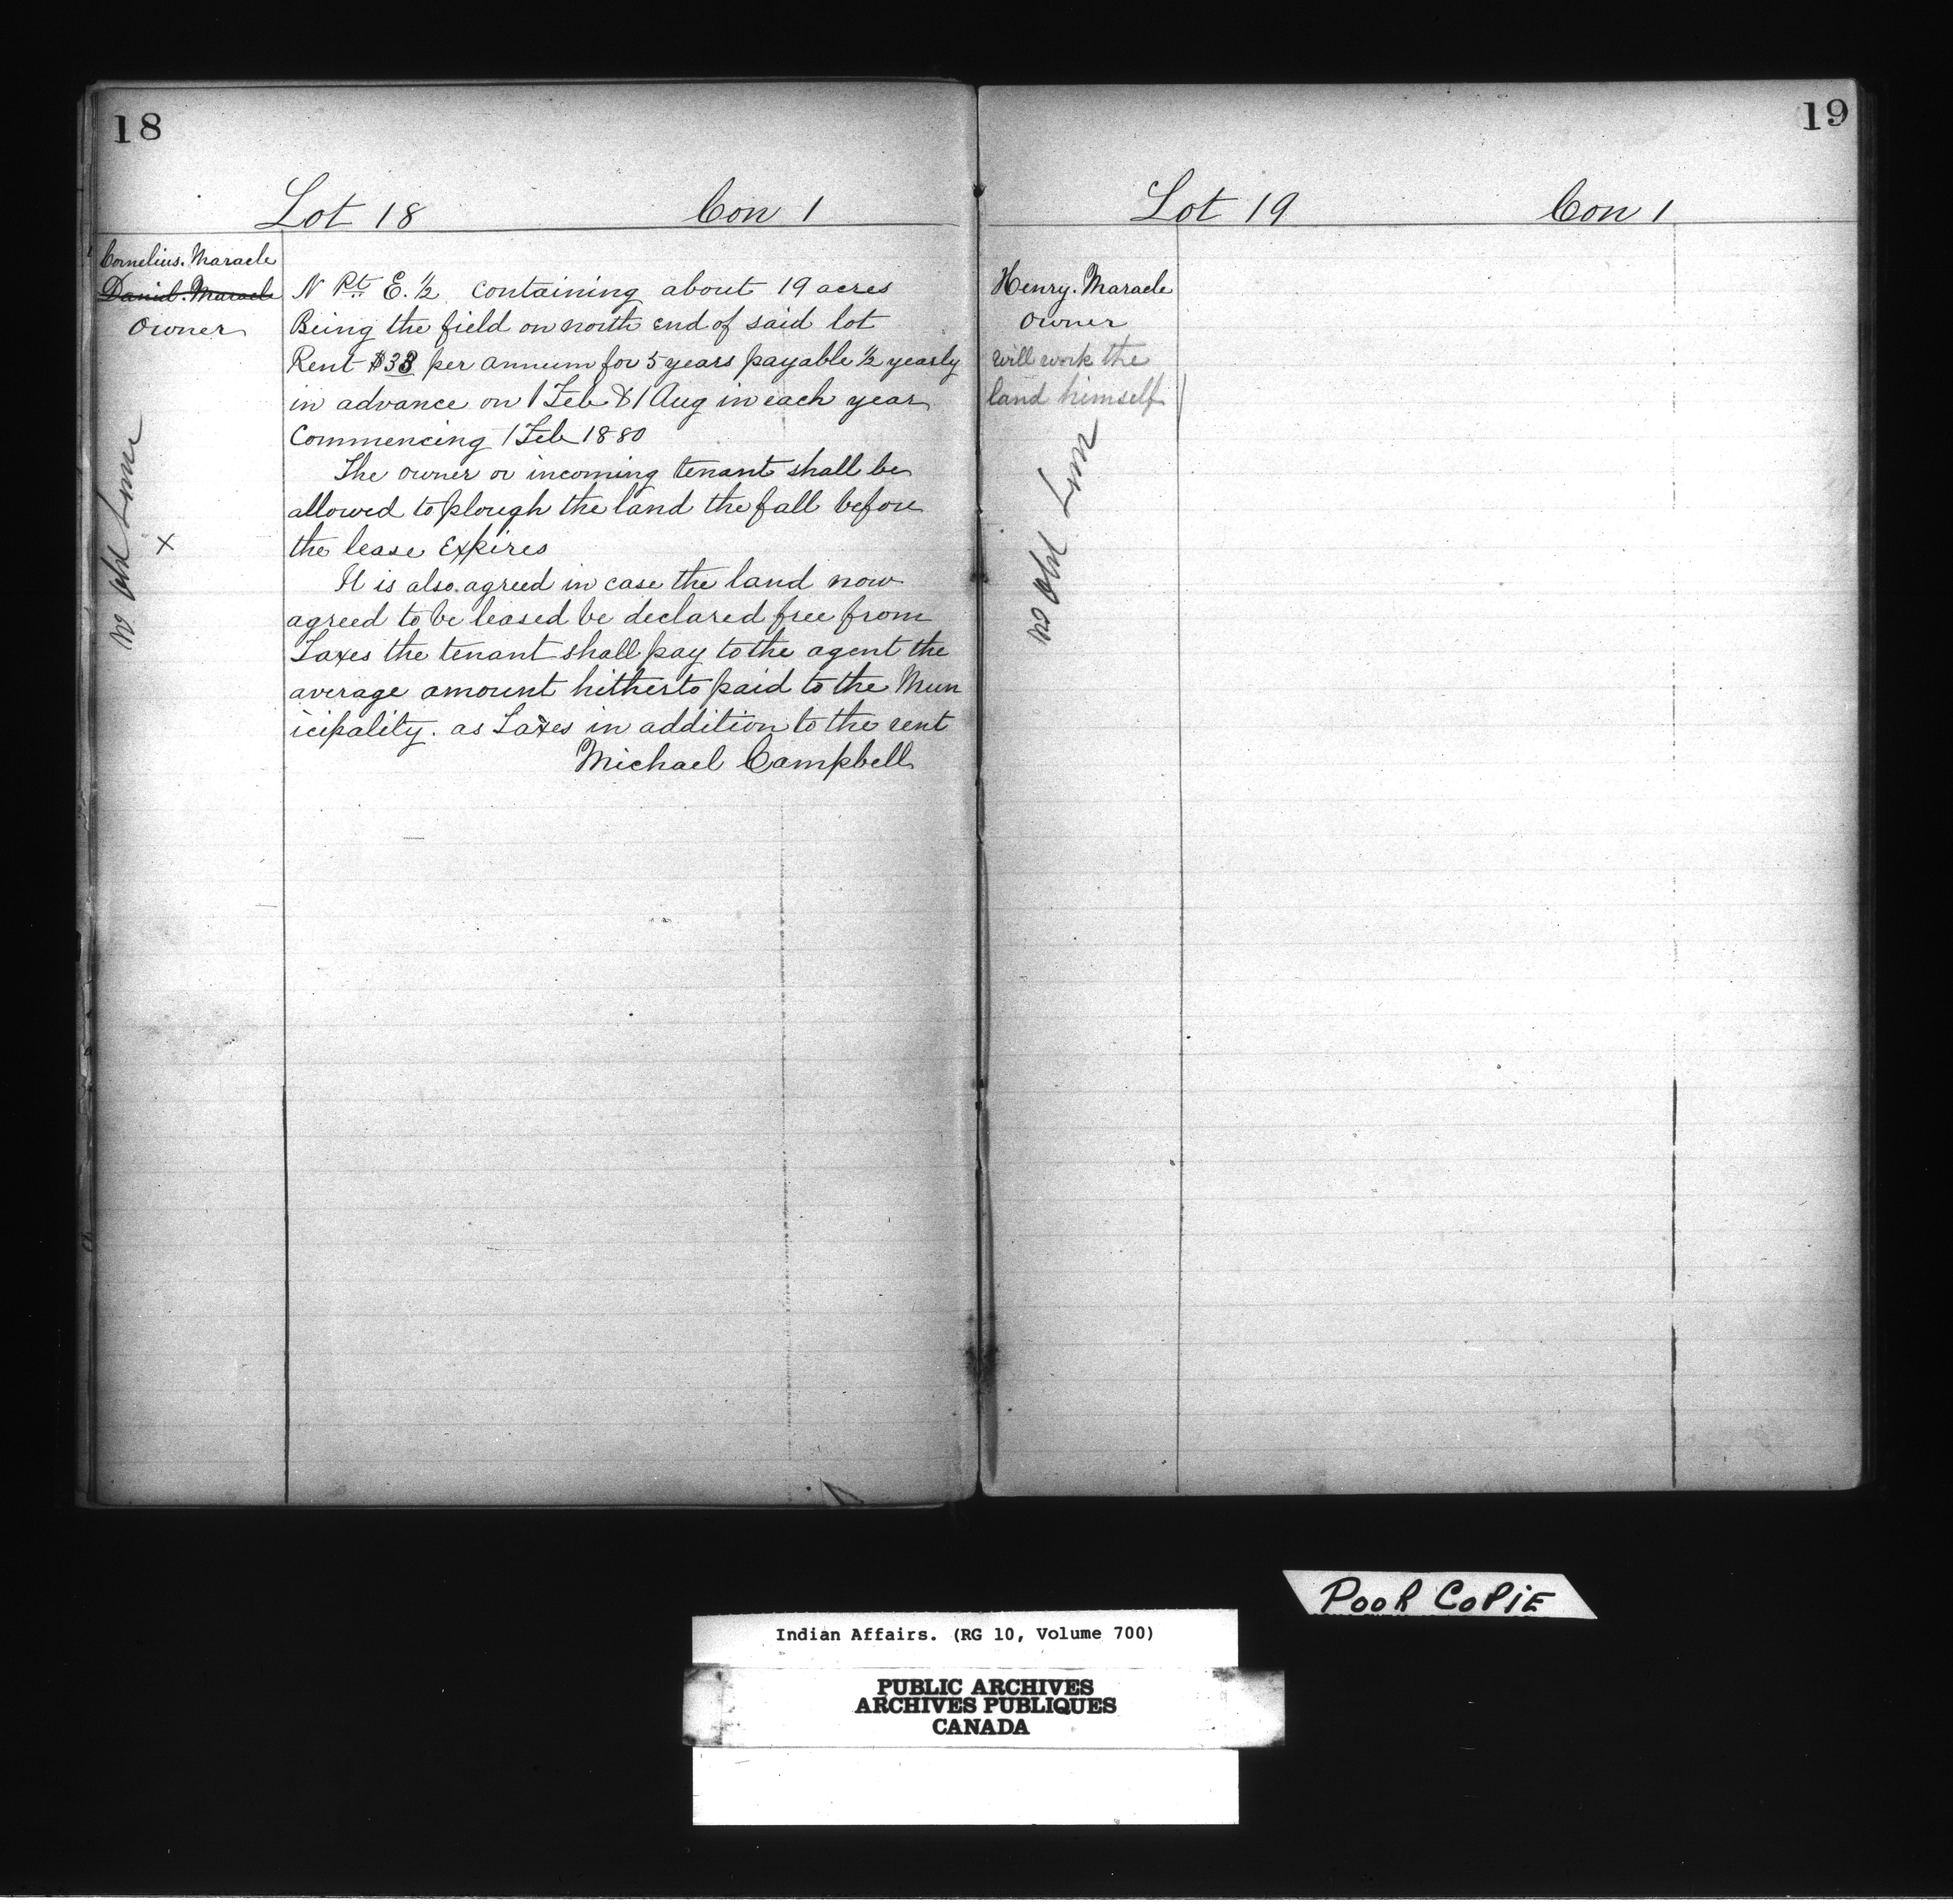 18
Lot 18 Con 1
Cornelius. Maracle
Daniel. Maracle
Owner
N Pt E. ½ containing about 19 acres
Being the field on north end of said lot
Rent $38 per annum for 5 years payable ½ yearly
in advance on 1 Feb & 1 Aug in each year
Commencing 1 Feb 1880
The owner or incoming tenant shall be
allowed to plough the land the fall before
the lease Expires
It is also agreed in case the land now
agreed to be leased be declared free from
Taxes the tenant shall pay to the agent the
average amount hitherto paid to the Mun
icipality. as Taxes in addition to the rent
Michael Campbell
X
19
Lot 19 Con 1
Henry. Maracle
Owner
will work the
land himself
POOR COPIE
Indian Affairs. (RG 10, Volume 700)
PUBLIC ARCHIVES
ARCHIVES PUBLIQUES
CANADA